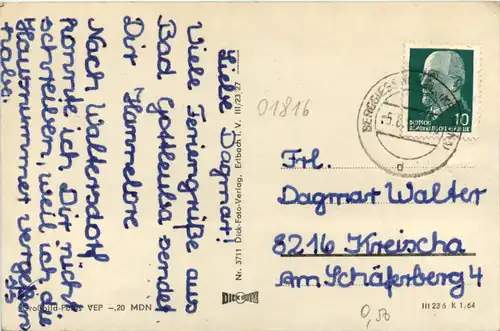 Liebe Dagmar!
Viele Feriengrüße aus
Bad Gottleuba sendet
Dir Hannelore
Nach Waltersdorf
konnte ich Dir nicht
schreiben, weil ich die
Hausnummer vergessen
habe.
Nr. 3711 Dick-Foto-Verlag, Erlbach i. V. III/23/27
DICK FOTO
VEP -,20 MDN
01816
10
DEUTSCHE
DEMOKRATISCHE REPUBLIK
d
Frl.
Dagmar Walter
8216 Kreischa
Am Schäferberg 4
III 23 6 K 1/64
0,50